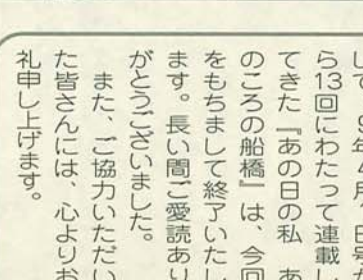 ら13回にわたって連載し
てきた『あの日の私 あ
のころの船橋』は、今回
をもちまして終了いたし
ます。長い間ご愛読あり
がとうございました。
また、ご協力いただい
た皆さんには、心よりお
礼申し上げます。